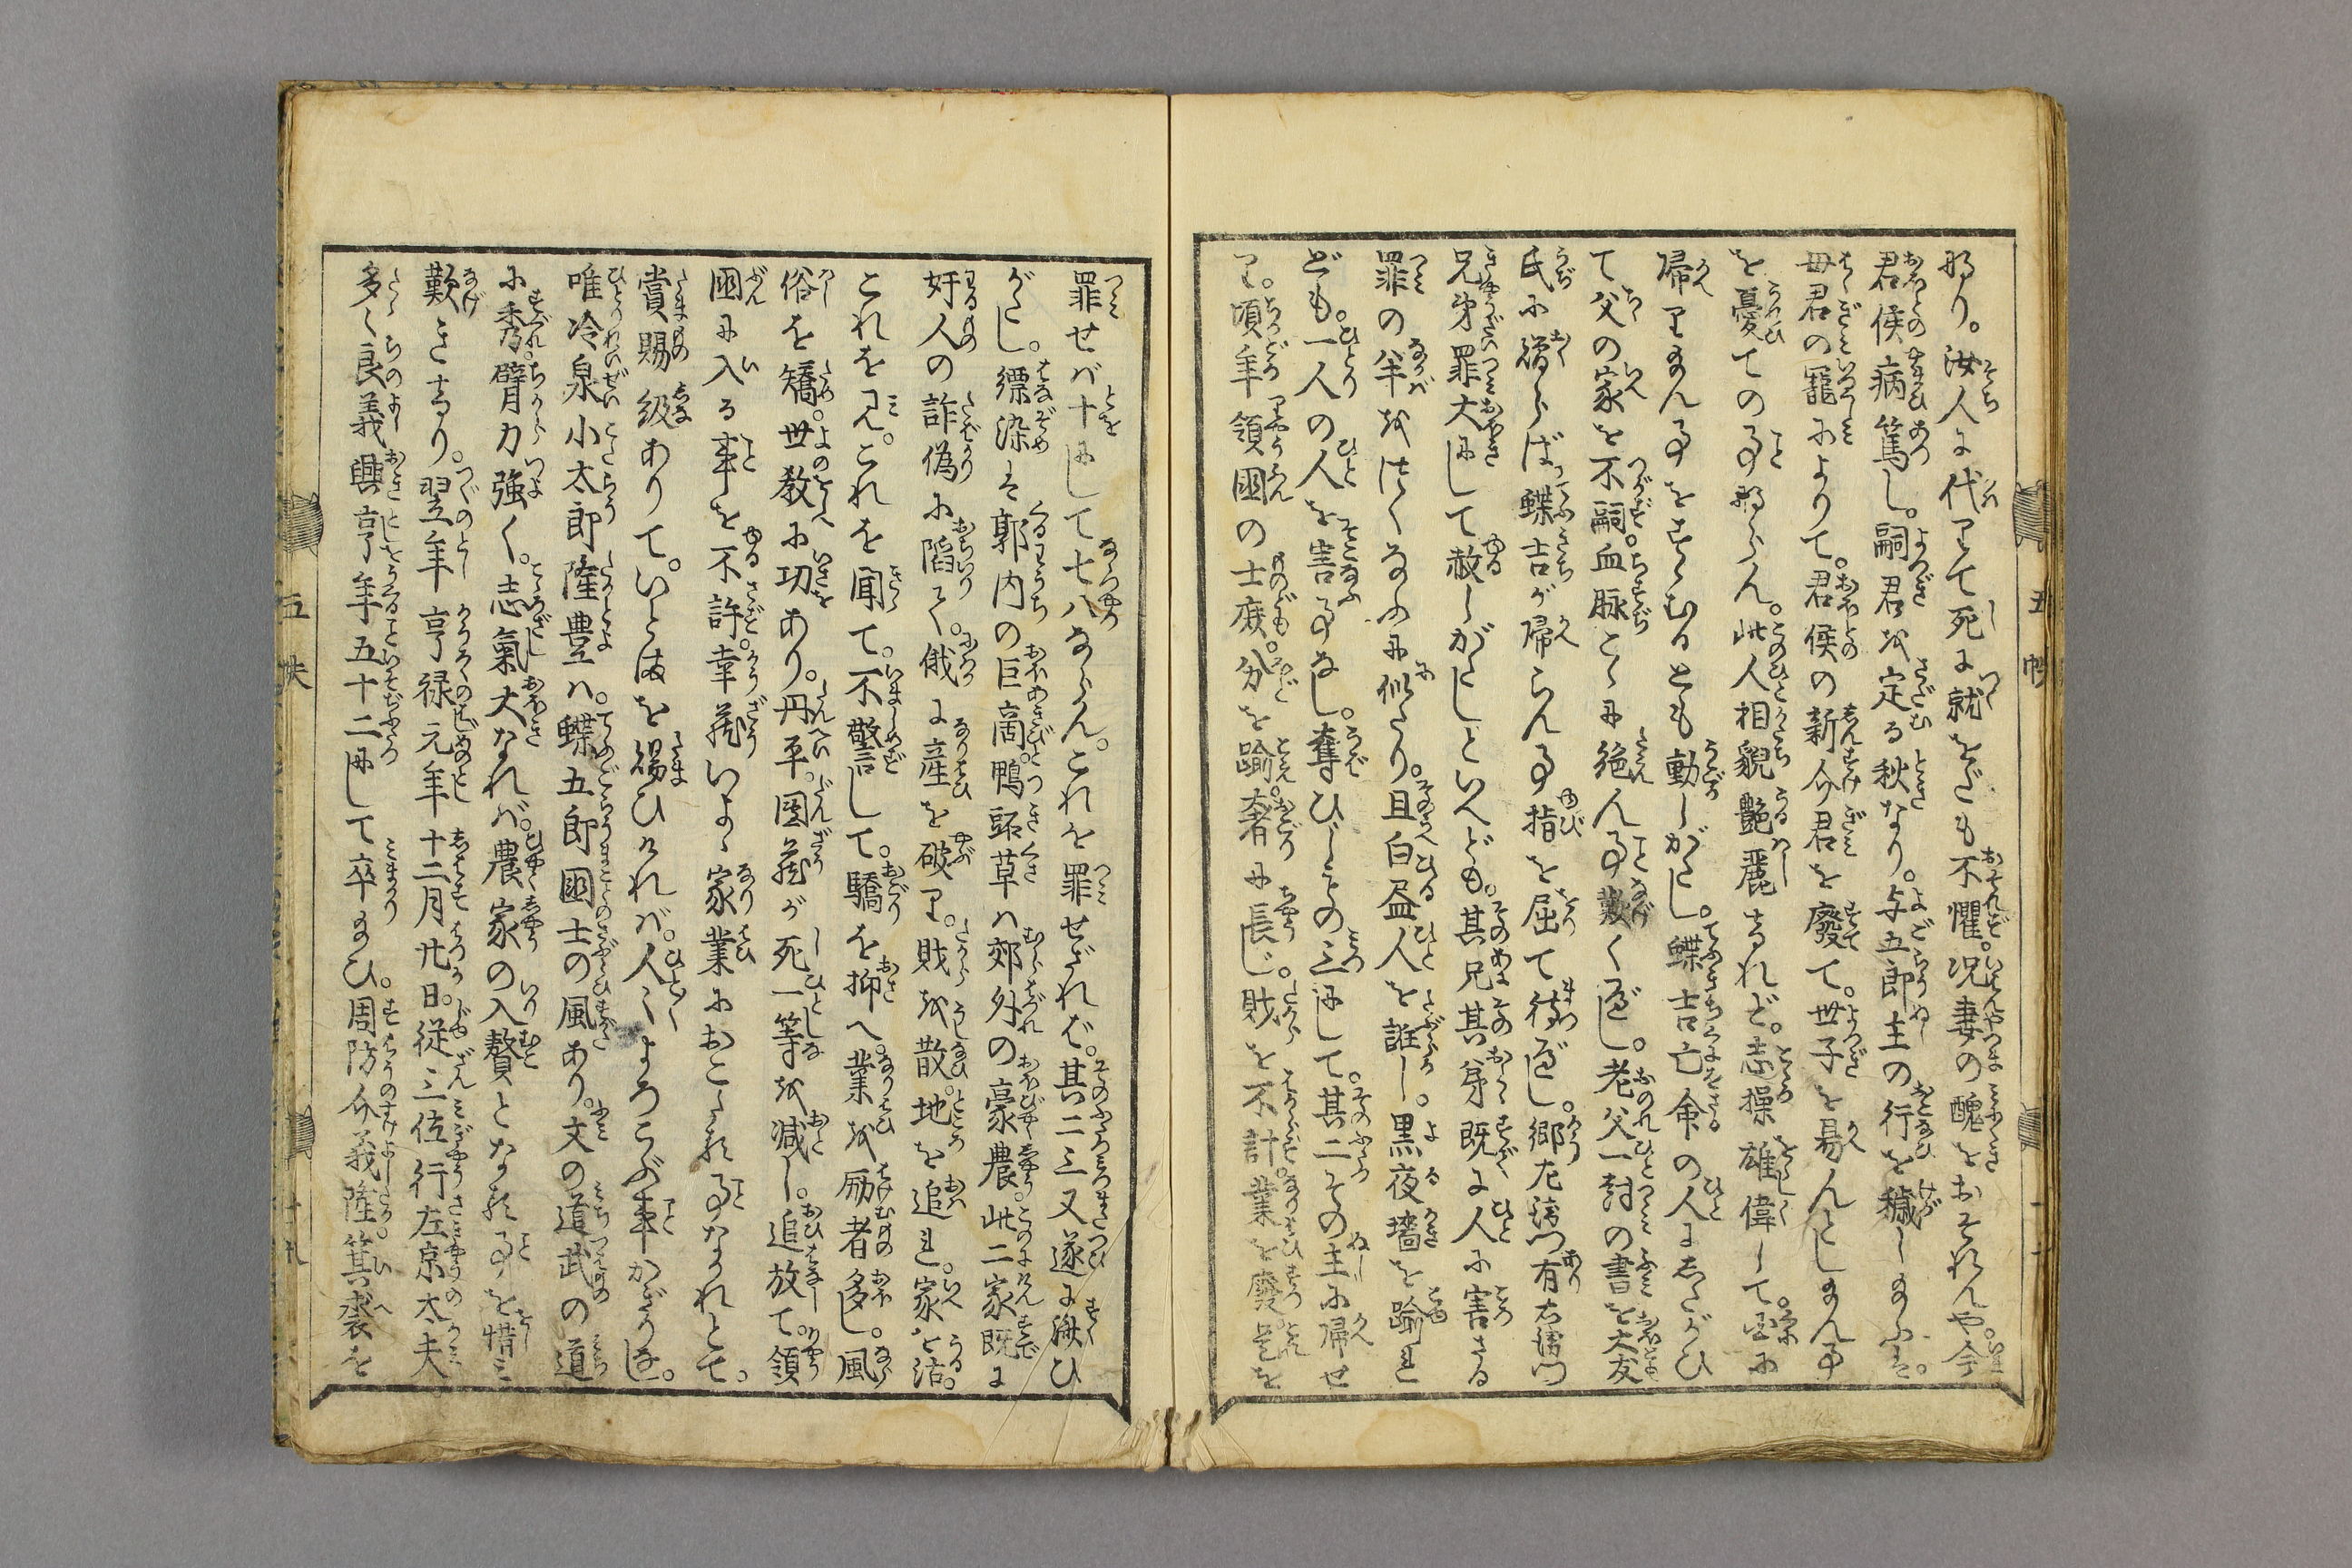 なり。汝人に代りて死に就をだも不懼。况妻の醜をおそれんや。今
君侯病篤し。嗣君を定る秋なり。与五郎主の行を穢し給ふは。
毋君の寵によりて。君侯の新介君を廢て。世子を易んとし給ん事
を憂ての事ならん。此人相貌艶麗なれど。志操雄偉して。
帰り給ん事をすゝむるとも動しがたし。蝶吉亡命の人にしたがひ
て父の家を不嗣。血脉こゝに絶ん事歎くべし。老父一封の書を大友
氏に贈らば蝶吉が帰らん事指を屈て待べし。郷左衛門有右衛門
兄弟罪大にして赦しがたしといへども。其兄其弟既に人に害さる
罪の半をはくなふに似たり。且白昼人を誑し。黒夜墻を踰れ
ども。一人の人を害事なし。奪ひしもの三にして。其二その主に帰せ
り。頃年領國の士庶。分を踰。奢に長じ。財を不計。業を廢。是を
罪せバ十にして七八ならん。これを罪せざれば。其二三又遂に掬ひ
がたし。縹染は郭内の巨商。鴨跖草ハ郊外の豪農。此二家既に
奸人の詐偽に陷て。俄に産を破り。財を散。地を追れ。家を沽。
これを見。これを聞て。不警して。驕を抑へ。業を励者多し。風
俗を矯。世教に功あり。丹平。團蔵が死一等を減し。追放て。領
國に入る事を不許。幸蔵いよゝ家業におこたる事なかれとて。
賞賜級ありて。いとまを賜ひければ。人〻よろこぶ事かぎりなし。
唯冷泉小太郎隆豊ハ。蝶五郎國士の風あり。文の道武の道
に秀。臂力強く。志氣大なれバ。農家の入贅となる事を惜み
歎きけり。翌年亨禄元年十二月廿日。従三位行左京太夫
多々良義興享年五十二にして卒給ひ。周防介義隆。箕裘を
五帙
五帙
十九